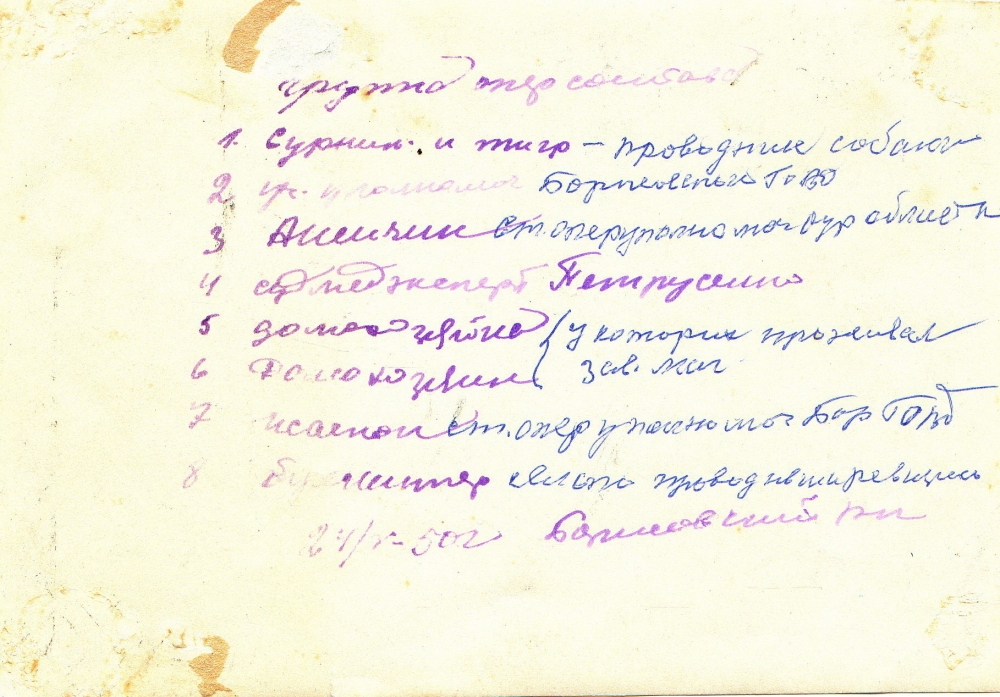 группа оперсостава
1. Сурнин. и тигр – проводник собаки
2 уч. уполномоч Борисовского ГоВД
3 Ст. оперуполномоч оур области
4 судмедэксперт Петрусенко
5 домохозяйка { у которых проживал
6 Домохозяин зав. маг
7 ст. оперуполномоч Бор ГОВД
8 бухгалтер проводивши ревизию
24/х-50г Борисовский рн